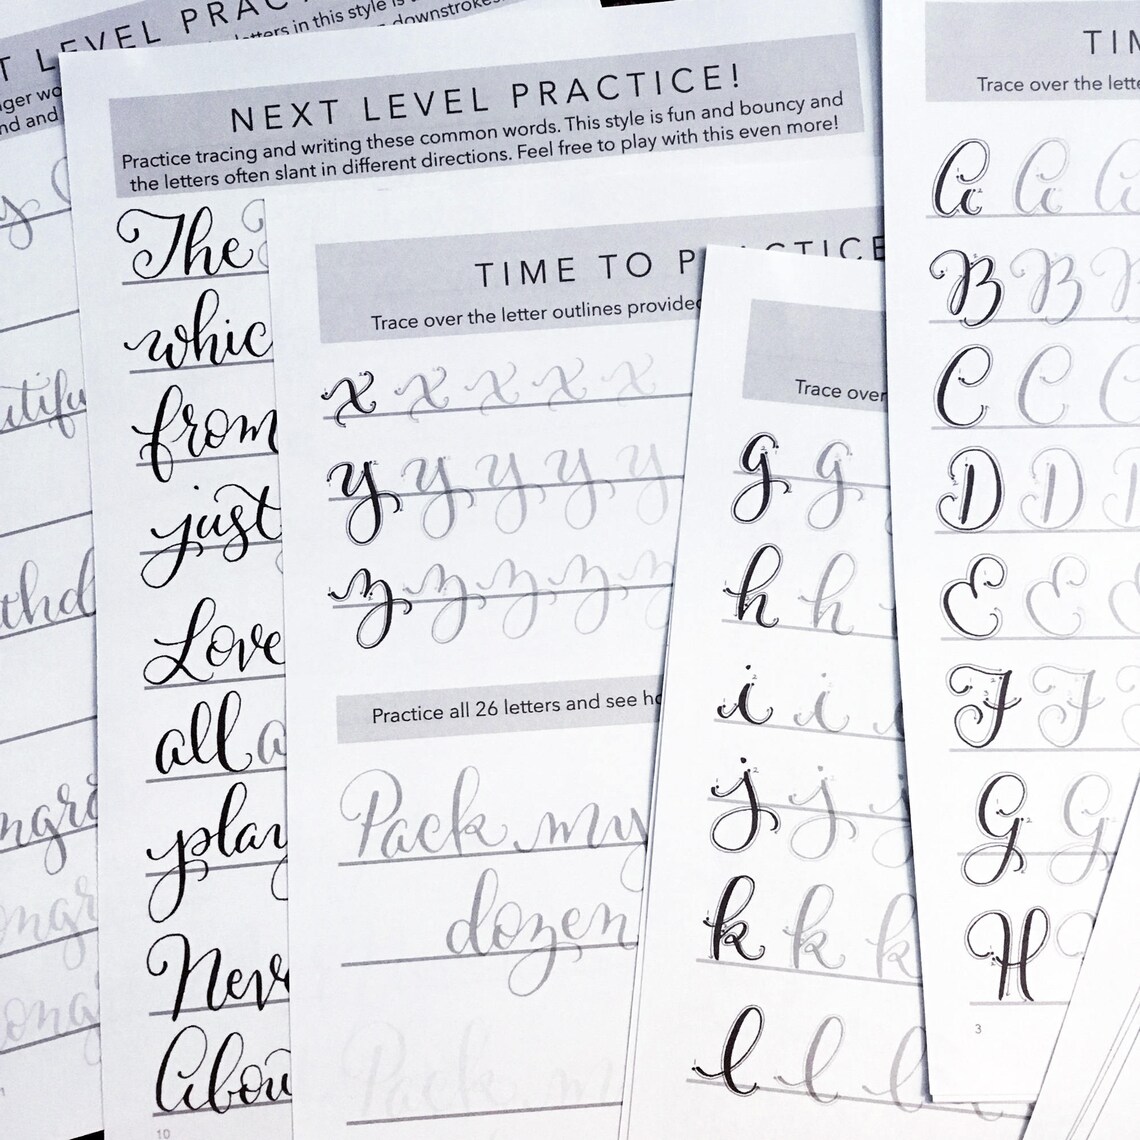 LEVEL PRAC
letters in this style is
downstrokes.
nd and
NEXT LEVEL PRACTICE!
Practice tracing and writing these common words. This style is fun and bouncy and
the letters often slant in different directions. Feel free to play with this even more!
The
whic
from
just
Love
all a
play
Neve
Abou
10
TIME TO PRACTICE
Trace over the letter outlines provided
x x x x x
y y y y y
z z z z z
Practice all 26 letters and see ho
Pack my
dozen
Pack m
Trace over
g g
h h
i i
j j j
k k k
l l l
TIM
Trace over the lette
A A A
B B B
C C C
D D D
E E E
F F F
G G
H
3